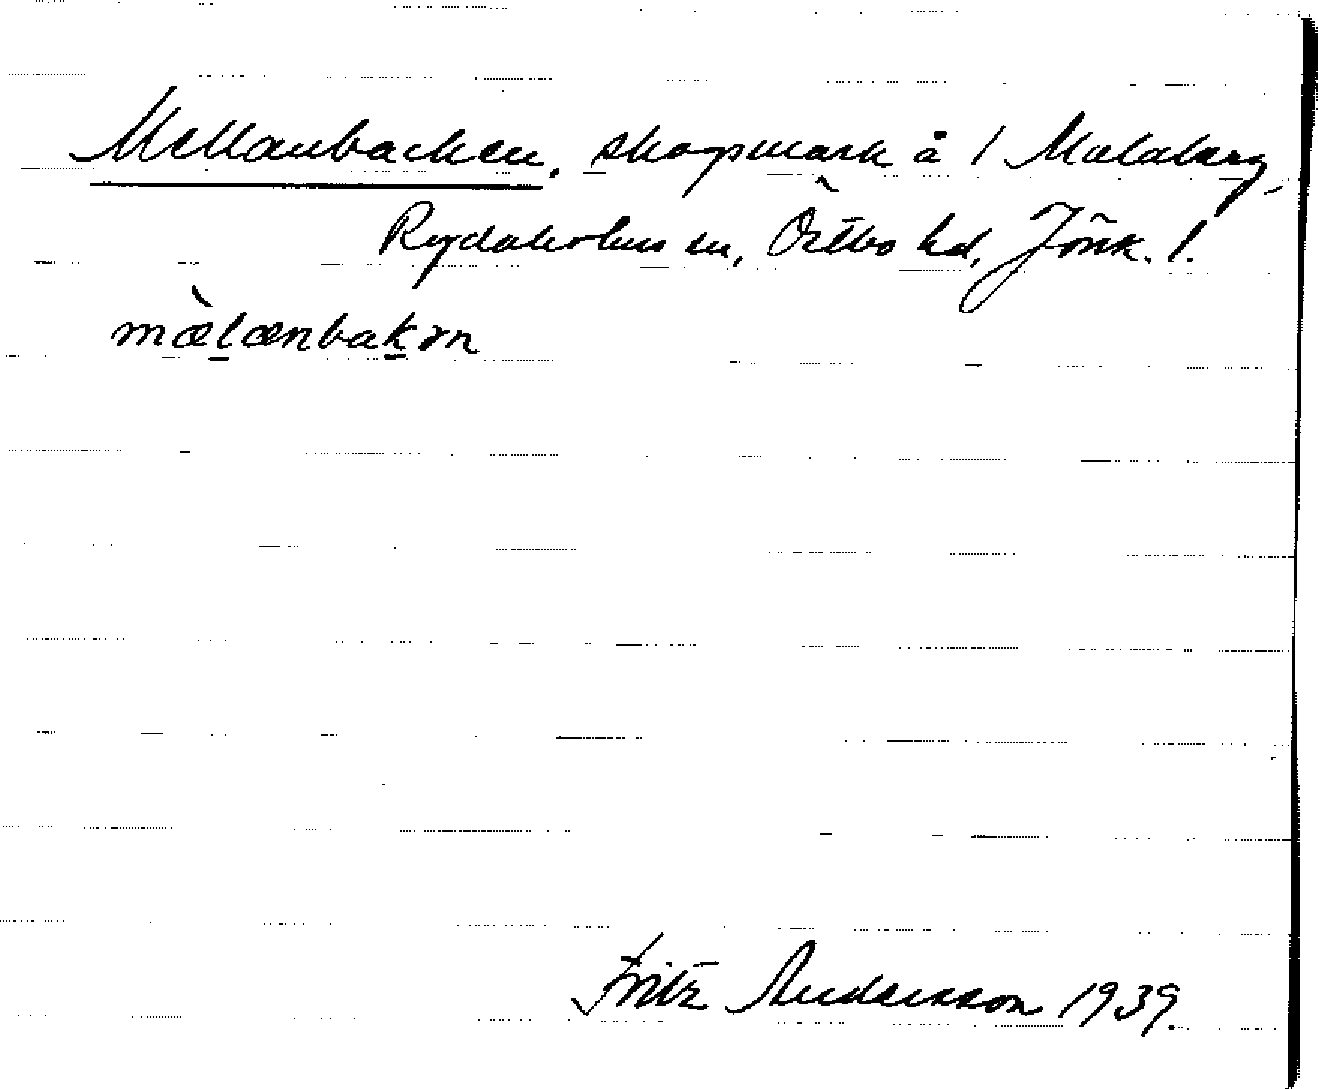 Mellanbacken, skogsmark å 1 Målaberg,
Rydaholms sn, Östbo hd, Jönk. l.
mæ̀lænbakən
Fritz Andersson 1939.